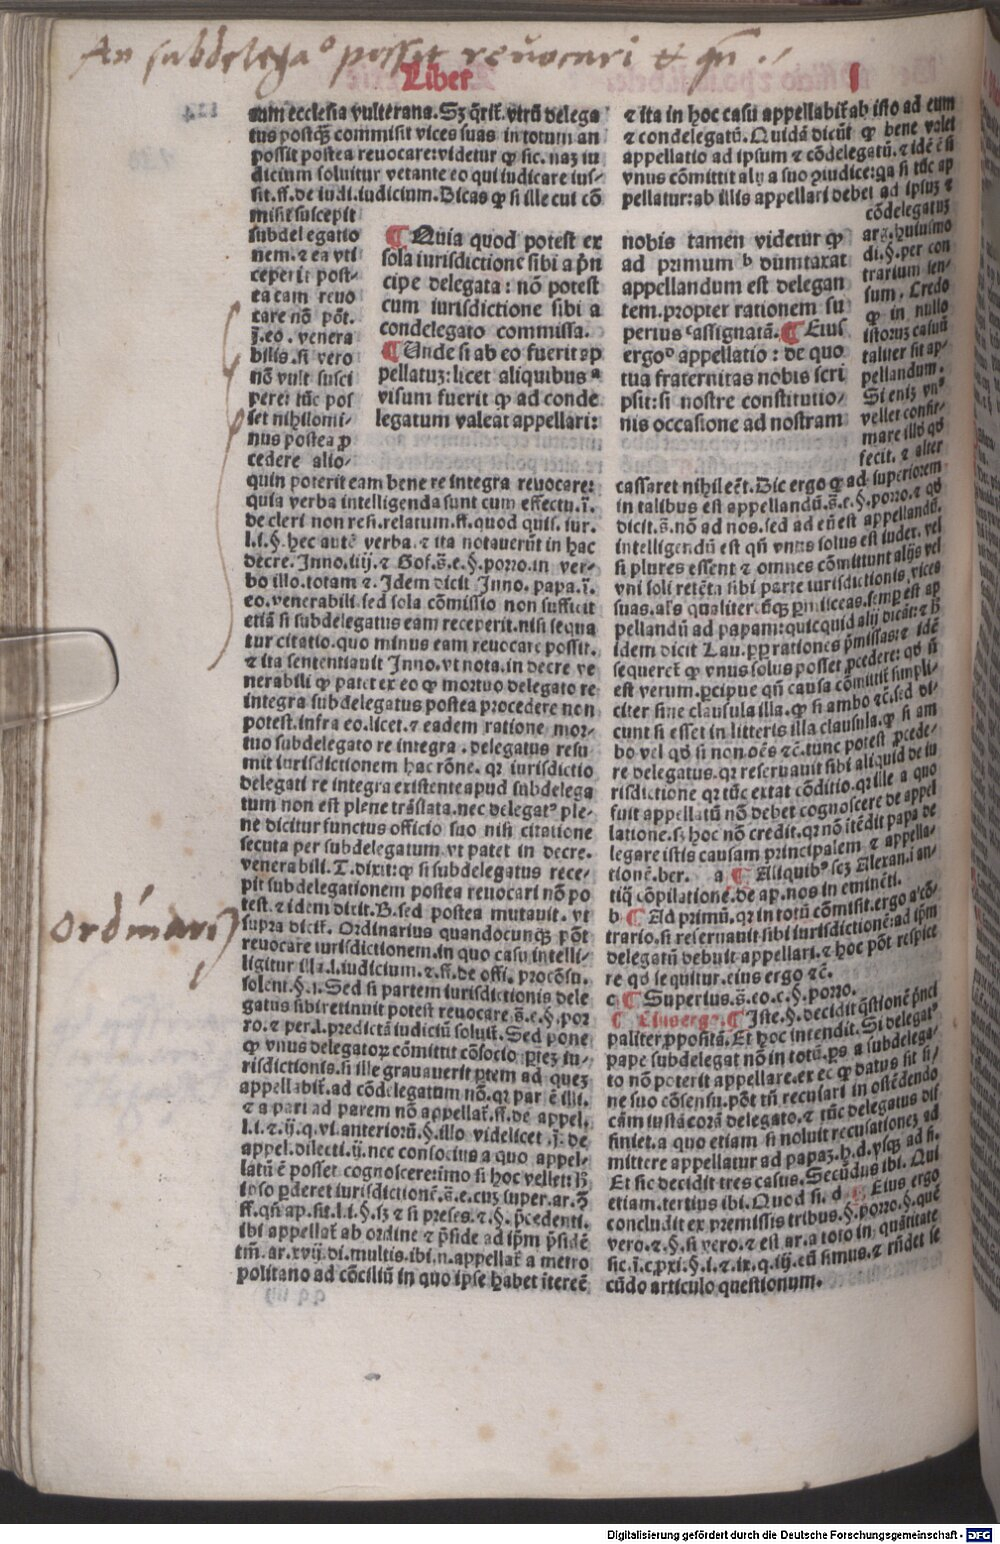 An subdelegaº possit reuocari & qñ ./
Liber I
cum ecclesia vulterana. Sz q̃rit̃. vtrũ delega
tus postq̃ʒ commisit vices suas in totum an
possit postea reuocare: videtur ꝙ sic. naʒ iu
dicium soluitur vetante eo qui iudicare ius-
sit. ff. de iudi. iudicium. Dicas ꝙ si ille cui cõ
misit suscepit
subdelegatio
nem. ⁊ ea vti
ceperit post-
ea eam reuo
care nõ põt.
j̃. eo. venera
bilis. si vero
nõ vult susci
pere: tũc pos
set nihilomi-
nus postea ꝓ
cedere alio-
quin poterit eam bene re integra reuocare:
quia verba intelligenda sunt cum effectu. ĩ.
de cleri non resi. relatum. ff. quod quis. iur.
l. i. §. hec autẽ verba. ⁊ ita notauerũt in hac
decre. Inno. iiij. ⁊ Gof. s̃. e. §. porro. in ver-
bo illo. totam ⁊. Idem dicit Inno. papa. ĩ.
eo. venerabili sed sola cõmissio non sufficit
etiã si subdelegatus eam receperit. nisi sequa
tur citatio. quo minus eam reuocare possit.
⁊ ita sententiauit Inno. vt nota. in decre ve
nerabili ꝙ patet ex eo ꝙ mortuo delegato re
integra subdelegatus postea procedere non
potest. infra eo. licet. ⁊ eadem ratione mor-
tuo subdelegato re integra. delegatus resu
mit iurisdictionem hac rõne. qꝛ iurisdictio
delegati re integra existente apud subdelega
tum non est plene trãslata. nec delegatꝰ ple-
ne dicitur functus officio suo nisi citatione
secuta per subdelegatum vt patet in decre.
venerabili. T. dixit: ꝙ si subdelegatus rece-
pit subdelegationem postea reuocari nõ po
test. ⁊ idem dicit. B. sed postea mutauit. vt
supra dicit̃. Ordinarius quandocunqʒ põt
reuocare iurisdictionem. in quo casu intelli-
ligitur illa. l. iudicium. ⁊. ff. de offi. procõsu.
soleni. §. i. Sed si partem iurisdictionis dele
gatus sibi retinuit potest reuocare s̃. e. §. por
ro. ⁊ per. l. predictã iudiciũ soluit̃. Sed pone
ꝙ vnus delegatoꝝ cõmittit cõsocio ꝑteʒ iu-
risdictionis. si ille grauauerit ꝑtem ad queʒ
appellabit̃. ad cõdelegatum nõ. qꝛ par ẽ illi.
⁊ a pari ad parem nõ appellat̃. ff. de appel.
l. i. ⁊. ij. q. vi. anteriorũ. §. illo videlicet. j̃. de
appel. dilecti. ij. nec consocius a quo appel-
latũ ẽ posset cognoscere: imo si hoc vellet: hʒ
ipso ꝑderet iurisdictionẽ. s̃. e. cuʒ super. ar.
ff. qñ ap. sit. l. i. §. sʒ ⁊ si preses. ⁊. §. p̃cedenti.
ibi appellat̃ ab ordine ⁊ p̃side ad ip̃m p̃sidẽ
tm̃. ar. xvij. di. multis. ibi. n. appellat̃ a metro
politano ad cõciliũ in quo ipse habet itereẽ
Ordinari9
¶ Quia quod potest ex
sola iurisdictione sibi a p̃n
cipe delegata: nõ potest
cum iurisdictione sibi a
condelegato commissa.
¶ Unde si ab eo fuerit ap
pellatuʒ: licet aliquibus ª
visum fuerit ꝙ ad conde
legatum valeat appellari:
nobis tamen videtur ꝙ
ad primum ᵇ dumtaxat
appellandum est delegan
tem. propter rationem su
perius ᶜ assignatã. ¶ Eius
ergo ᴰ appellatio: de quo
tua fraternitas nobis scri
psit: si nostre constitutio-
nis occasione ad nostram
⁊ ita in hoc casu appellabit̃ ab isto ad eum
⁊ condelegatũ. Quidã dicũt ꝙ bene valet
appellatio ad ipsum ⁊ cõdelegatũ. ⁊ idẽ ẽ si
vnus cõmittit alij a suo ꝓiudice: qa si tũc ap
pellatur: ab illis appellari debet ad ipsuʒ ⁊
cõdelegatuʒ
ar. huiusmo
di. §. per con
trarium sen-
sum. Credo
ꝙ in nullo
istoruʒ casuũ
taliter sit ap-
pellandum.
Si eniʒ vnꝰ
vellet confir-
mare illd qd
fecit. ⁊ alter
cassaret nihil eẽt. Dic ergo ꝙ ad superiorem
in talibus est appellandũ. s̃. e. §. porro. ⁊ qd
dicit. s̃. nõ ad nos. sed ad eũ est appellandũ.
intelligendũ est qñ vnus solus est iudex. vel
si plures essent ⁊ omnes cõmittunt aliq̃s vel
vni soli retẽta sibi parte iurisdictionis vices
suas. als qualitercũqʒ ꝑmisceas. semꝑ est ap
pellandũ ad papam: quicquid alij dicãt: ⁊ hʒ
idem dicit Lau. ꝓꝑ rationes p̃missas: ⁊ idẽ
sequeret̃ ꝙ vnus solus posset ꝓcedere: qd si
est verum. p̃cipue qñ causa cõmittit̃ simpli-
citer sine clausula illa. ꝙ si ambo ⁊c̃. sed di-
cunt si esset in litteris illa clausula. ꝙ si am
bo vel qd si non oẽs ⁊c̃. tunc potest ꝓcede-
re delegatus. qꝛ reseruauit sibi aliquid de iu
risdictione qꝛ tũc extat cõditio. qꝛ ille a quo
fuit appellatũ nõ debet cognoscere de appel
latione. sʒ hoc nõ credit. qꝛ nõ ĩtẽdit papa de
legare istis causam principalem ⁊ appella-
tionẽ. ber. a ¶ Aliquibꝰ scʒ Alexan. i an-
tiq̃ cõpilatione. de ap. nos in eminẽti.
b ¶ Ad primũ. qꝛ in totũ cõmisit. ergo a ꝯ̃-
trario. si reseruauit sibi iurisdictionẽ: ad ip̃m
delegatũ debuit appellari. ⁊ hoc põt respice
re qd sequitur. eius ergo ⁊c̃.
c ¶ Superius. s̃. eo. c. §. porro.
¶ Eius ergo. ¶ Iste. §. decidit q̃stionẽ p̃nci
paliter ꝓpositã. Et hoc intendit. Si delegatꝰ
pape subdelegat nõ in totũ. ps̃ a subdelega-
to nõ poterit appellare. ex eo ꝙ datus sit si-
ne suo cõsensu. põt tñ recusari in ostẽdendo
cãm iustã corã delegato. ⁊ tũc delegatus dif
finiet. a quo etiam si noluit recusationeʒ ad
mittere appellatur ad papaʒ. h. d. vsqʒ ad fi.
Et sic decidit tres casus. Secũdus ibi. Qui
etiam. tertius ibi. Quod si. d ¶ Eius ergo
concludit ex premissis tribus. §. porro. §. quẽ
vero. ⁊. §. si vero. ⁊ est ar. a toto in quãtitate
sic. ĩ. c. ꝓxi. §. i. ⁊. ix. q. iij. cũ simus. ⁊ rñdet se
cũdo articulo questionum.
Digitalisierung gefördert durch die Deutsche Forschungsgemeinschaft - DFG